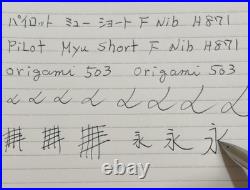 パイロット ミュー ショート F Nib H871
Pilot Myu Short F Nib H871
origami 503 origami 503
永 永 永